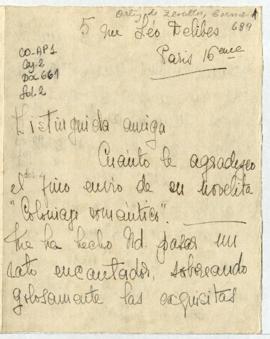 Ortiz de Zevallos, Carmen
689
5 rue Léo Delibes
Paris 16eme
CO-AP1
Cj. 2
Doc 661
Fol. 2
Distinguida amiga
Cuanto le agradezco
el fino envío de su novelita
"Coloniaje romántico".
Me ha hecho Ud. pasar un
rato encantador, saboreando
golosamente las exquisitas